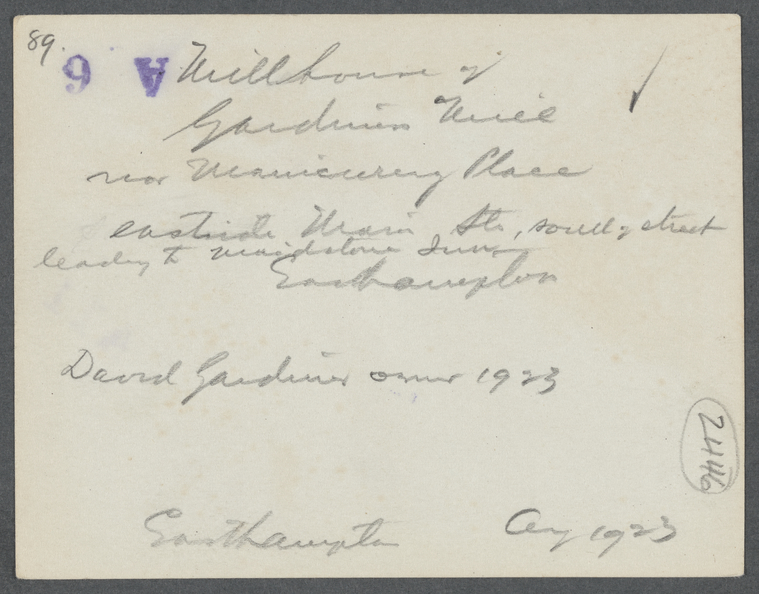 89.
6 A Mill house of
Gardiner Mill
near Manicuring Place
eastside Main St., south of street
leading to Maidstone Inn
Easthampton
David Gardiner owner 1923
2446
Easthampton Aug 1923